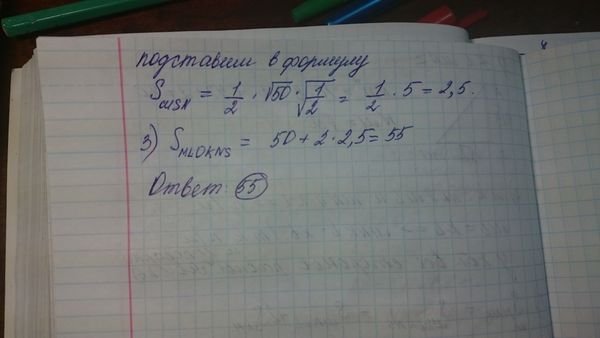 подставим в формулу
S = 1/2 · √50 · √1/2 = 1/2 · 5 = 2,5.
3) S MLOKNS = 50 + 2 · 2,5 = 55
Ответ 55